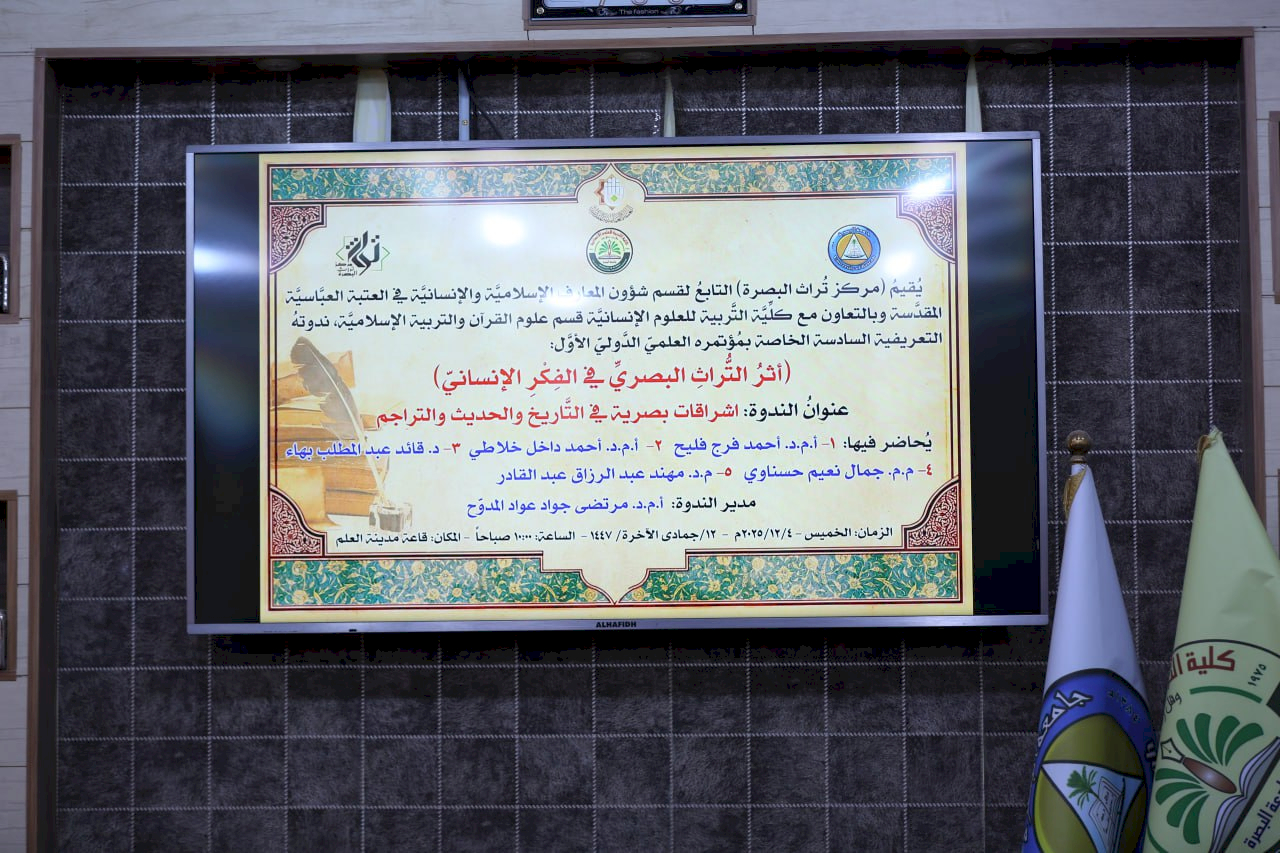 The fashion
يُقيمُ (مركز تُراث البصرة) التابعُ لقسم شؤون المعارف الإسلاميَّة والإنسانيَّة في العتبة العبَّاسيَّة
المقدَّسة وبالتعاون مع كليَّة التَّربية للعلوم الإنسانيَّة قسم علوم القرآن والتربية الإسلاميَّة، ندوتهُ
التعريفية السادسة الخاصة بمُؤتمره العلميّ الدَّوليّ الأوَّل:
(أثرُ التُّراثِ البصريِّ في الفِكْرِ الإنسانيّ)
عنوانُ الندوة: اشراقات بصرية في التَّاريخ والحديث والتراجم
يُحاضر فيها: ١- أ.م.د. أحمد فرج فليح ٢- أ.م.د. أحمد داخل خلاطي ٣- د. قائد عبد المطلب بهاء
٤- م.م. جمال نعيم حسناوي ٥- م.د. مهند عبد الرزاق عبد القادر
مدير الندوة: أ.م.د. مرتضى جواد عواد المدوّح
الزمان: الخميس - ٢٠٢٥/١٢/٤م - ١٢/جمادى الآخرة/ ١٤٤٧ - الساعة: ١٠:٠٠ صباحاً - المكان: قاعة مدينة العلم
ALHAFIDH
كلية
١٩٧٥
البصرة